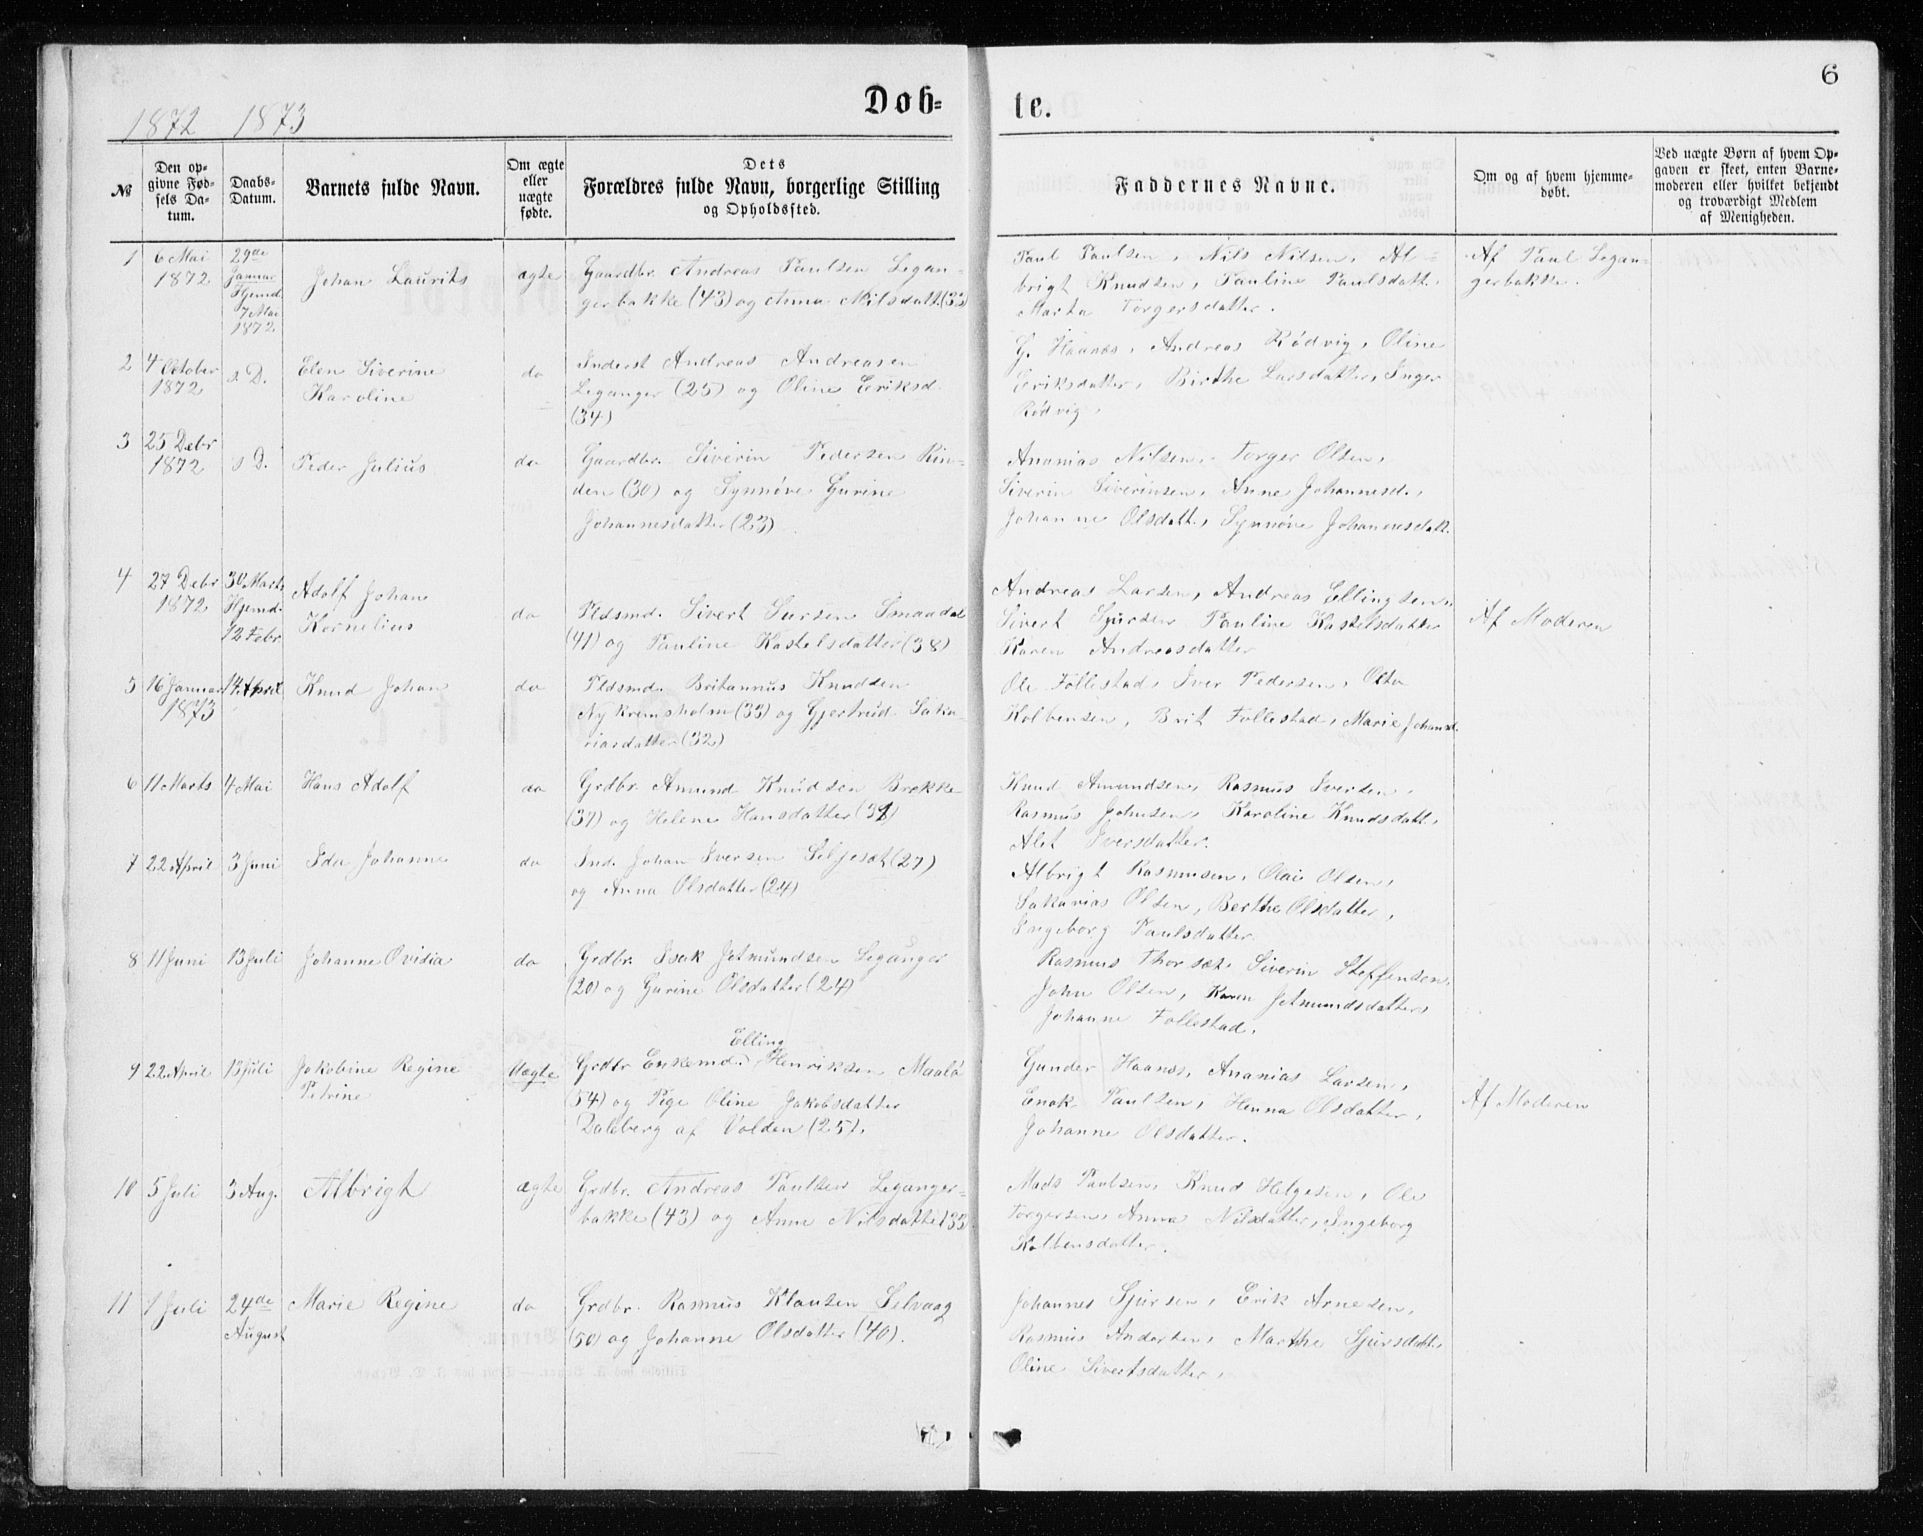 6
1872 1873
Døb-
te.
№
Den op-
givne Fød-
sels Da-
tum.
Daabs-
Datum.
Barnets fulde Navn.
Om ægte
eller
uægte
fødte.
Dets
Forældres fulde Navn, borgerlige Stilling
og Opholdssted.
Faddernes Navne.
Om og af hvem hjemme-
døbt.
Ved uægte Børn af hvem Op-
gaven er skeet, enten Barne-
moderen eller hvilket bekjendt
og troværdigt Medlem
af Menigheden.
1
6 Mai
1872
29de
Januar
Hjemd.
7 Mai
1872
Johan Laurits
ægte
Gaardbr. Andreas Paulsen Legan-
gerbakke (43) og Anna Nilsdatt. (33)
Paul Paulsen, Nils Nilsen, Al-
brigt Knudsen, Pauline Paulsdatt.
Marta Torgersdatter.
Af Paul Legan-
gerbakke.
2
4 October
1872
s. D.
Elen Siverine
Karoline
do
Inderst Andreas Andreasen
Leganger (25) og Oline Eriksd.
(34)
G. Haanæs, Andreas Rødvig, Oline
Eriksdatter, Birthe Larsdatter, Inger
Rødvig,
3
25 Debr
1872
s D.
Peder Julius
do
Gaardbr. Siverin Pedersen Rin-
den (30) og Synnøve Gurine
Johannesdatter (23)
Ananias Nilsen, Torger Olsen,
Siverin Siverinsen, Anne Johannesd.,
Johanne Olsdatt., Synnøve Johannesdatt.
4
27 Debr
1872
30 Marts
Hjemd.
12 Febr
Adolf Johan
Kornelius
do
Pldsmd. Sivert Sursen Smaadal
(41) og Pauline Kastelsdatter (38)
Andreas Larsen, Andreas Ellingsen,
Sivert Sjursen Pauline Kastelsdatter
Karen Andreasdatter
Af Moderen
5
16 Januar
1873
14 April
Knud Johan
do
Pldsmd. Britannus Knudsen
Nykremsholm (33) og Gjertrud Saka-
riasdatter (32)
Ole Follestad, Iver Pedersen, Olta
Kolbensen, Brit Follestad, Marie Johansd.
6
11 Marts
4 Mai
Hans Adolf
do
Grdbr. Amund Knudsen Brekke
(37) og Helene Hansdatter (31)
Knud Amundsen, Rasmus Iversen,
Rasmus Johnsen, Karoline Knudsdatt.,
Alet Iversdatter.
7
22 April
3 Juni
Ida Johanne
do
Ind. Johan Iversen Seljesæt (27)
og Anna Olsdatter (24)
Albrigt Rasmusen, Olai Olsen,
Sakarias Olsen, Berthe Olsdatter,
Ingeborg Paulsdatter.
8
11 Juni
13 Juli
Johanne Ovidia
do
Grdbr. Isak Jetmundsen Leganger
(20) og Gurine Olsdatter (24)
Rasmus Thorset, Siverin Steffensen,
John Olsen, Karen Jetmundsdatter,
Johanne Follestad.
9
22 April
13 Juli
Jakobine Regine
Petrine
Uægte
Elling
Grdbr Enkemd. Henriksen Maalø
(54) og Pige Oline Jakobsdatter
Daleberg af Volden (25).
Gunder Haanæs, Ananias Larsen,
Enok Paulsen, Henna Olsdatter,
Johanne Olsdatter.
Af Moderen
10
5 Juli
3 Aug.
Albrigt
ægte
Grdbr. Andreas Paulsen Leganger-
bakke (43) og Anne Nilsdatter (33)
Mads Paulsen, Knud Helgesen, Ole
Torgersen, Anna Nilsdatter, Ingeborg
Kolbensdatter.
11
1 Juli
24de
August
Marie Regine
do
Grdbr. Rasmus Klausen Selvaag
(50) og Johanne Olsdatter (40).
Johannes Sjursen, Erik Arnesen,
Rasmus Andersen, Marthe Sjursdatt.,
Oline Sivertsdatter,